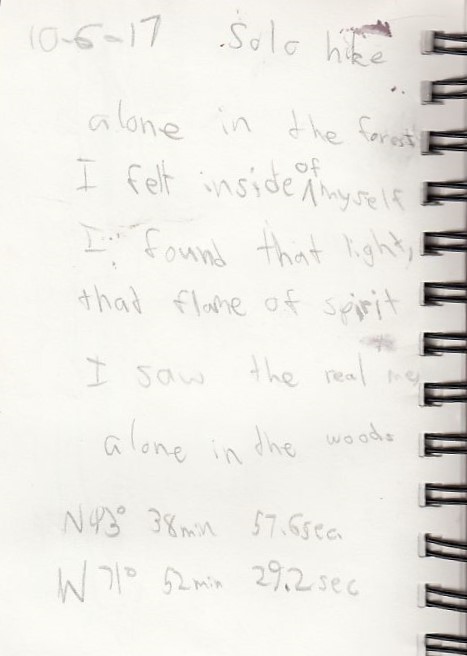 10-6-17 Solo hike
alone in the forest
I felt inside of myself
I found that light,
that flame of spirit
I saw the real me,
alone in the woods
N43° 38min 57.6sec
W 71° 52min 29.2sec